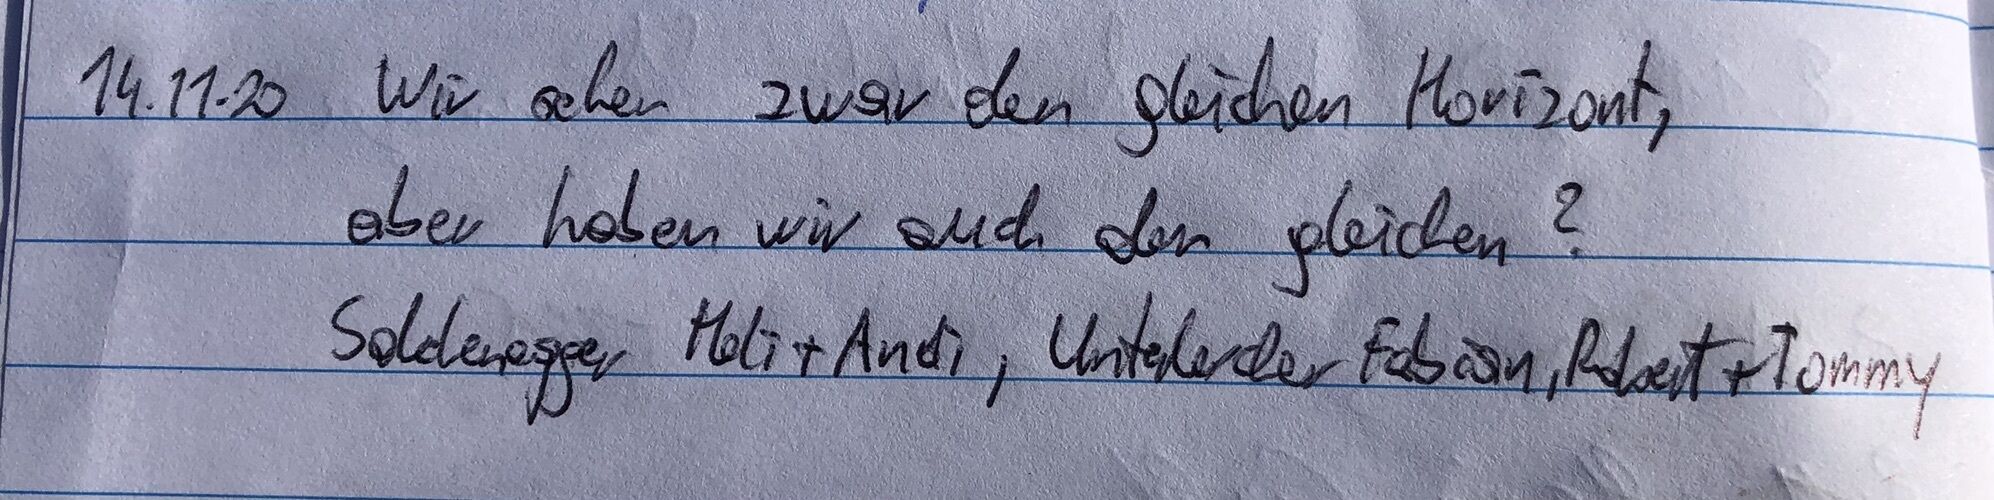 14.11.20 Wir sehen zwar den gleichen Horizont,
aber haben wir auch den gleichen?
Soldenegger Heli + Andi, Fabian, Robert + Tommy